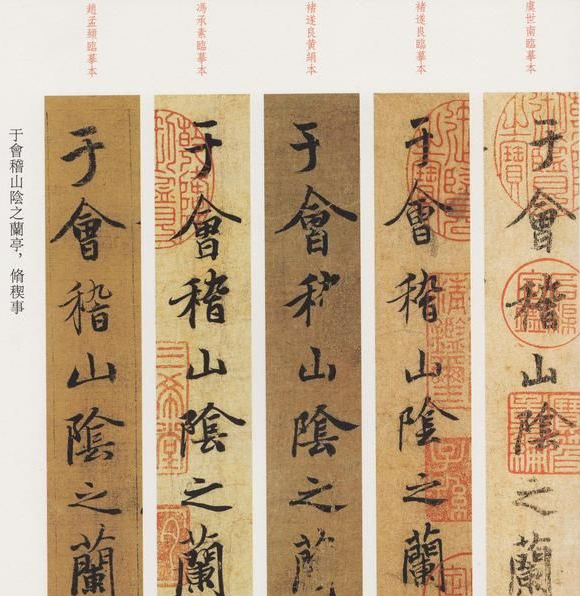 虞世南臨摹本
于會稽山陰之蘭
褚遂良臨摹本
于會稽山陰之蘭
褚遂良黃絹本
于會稽山陰之蘭
馮承素臨摹本
于會稽山陰之蘭
三希堂
趙孟頫臨摹本
于會稽山陰之蘭
于會稽山陰之蘭亭，脩稧事